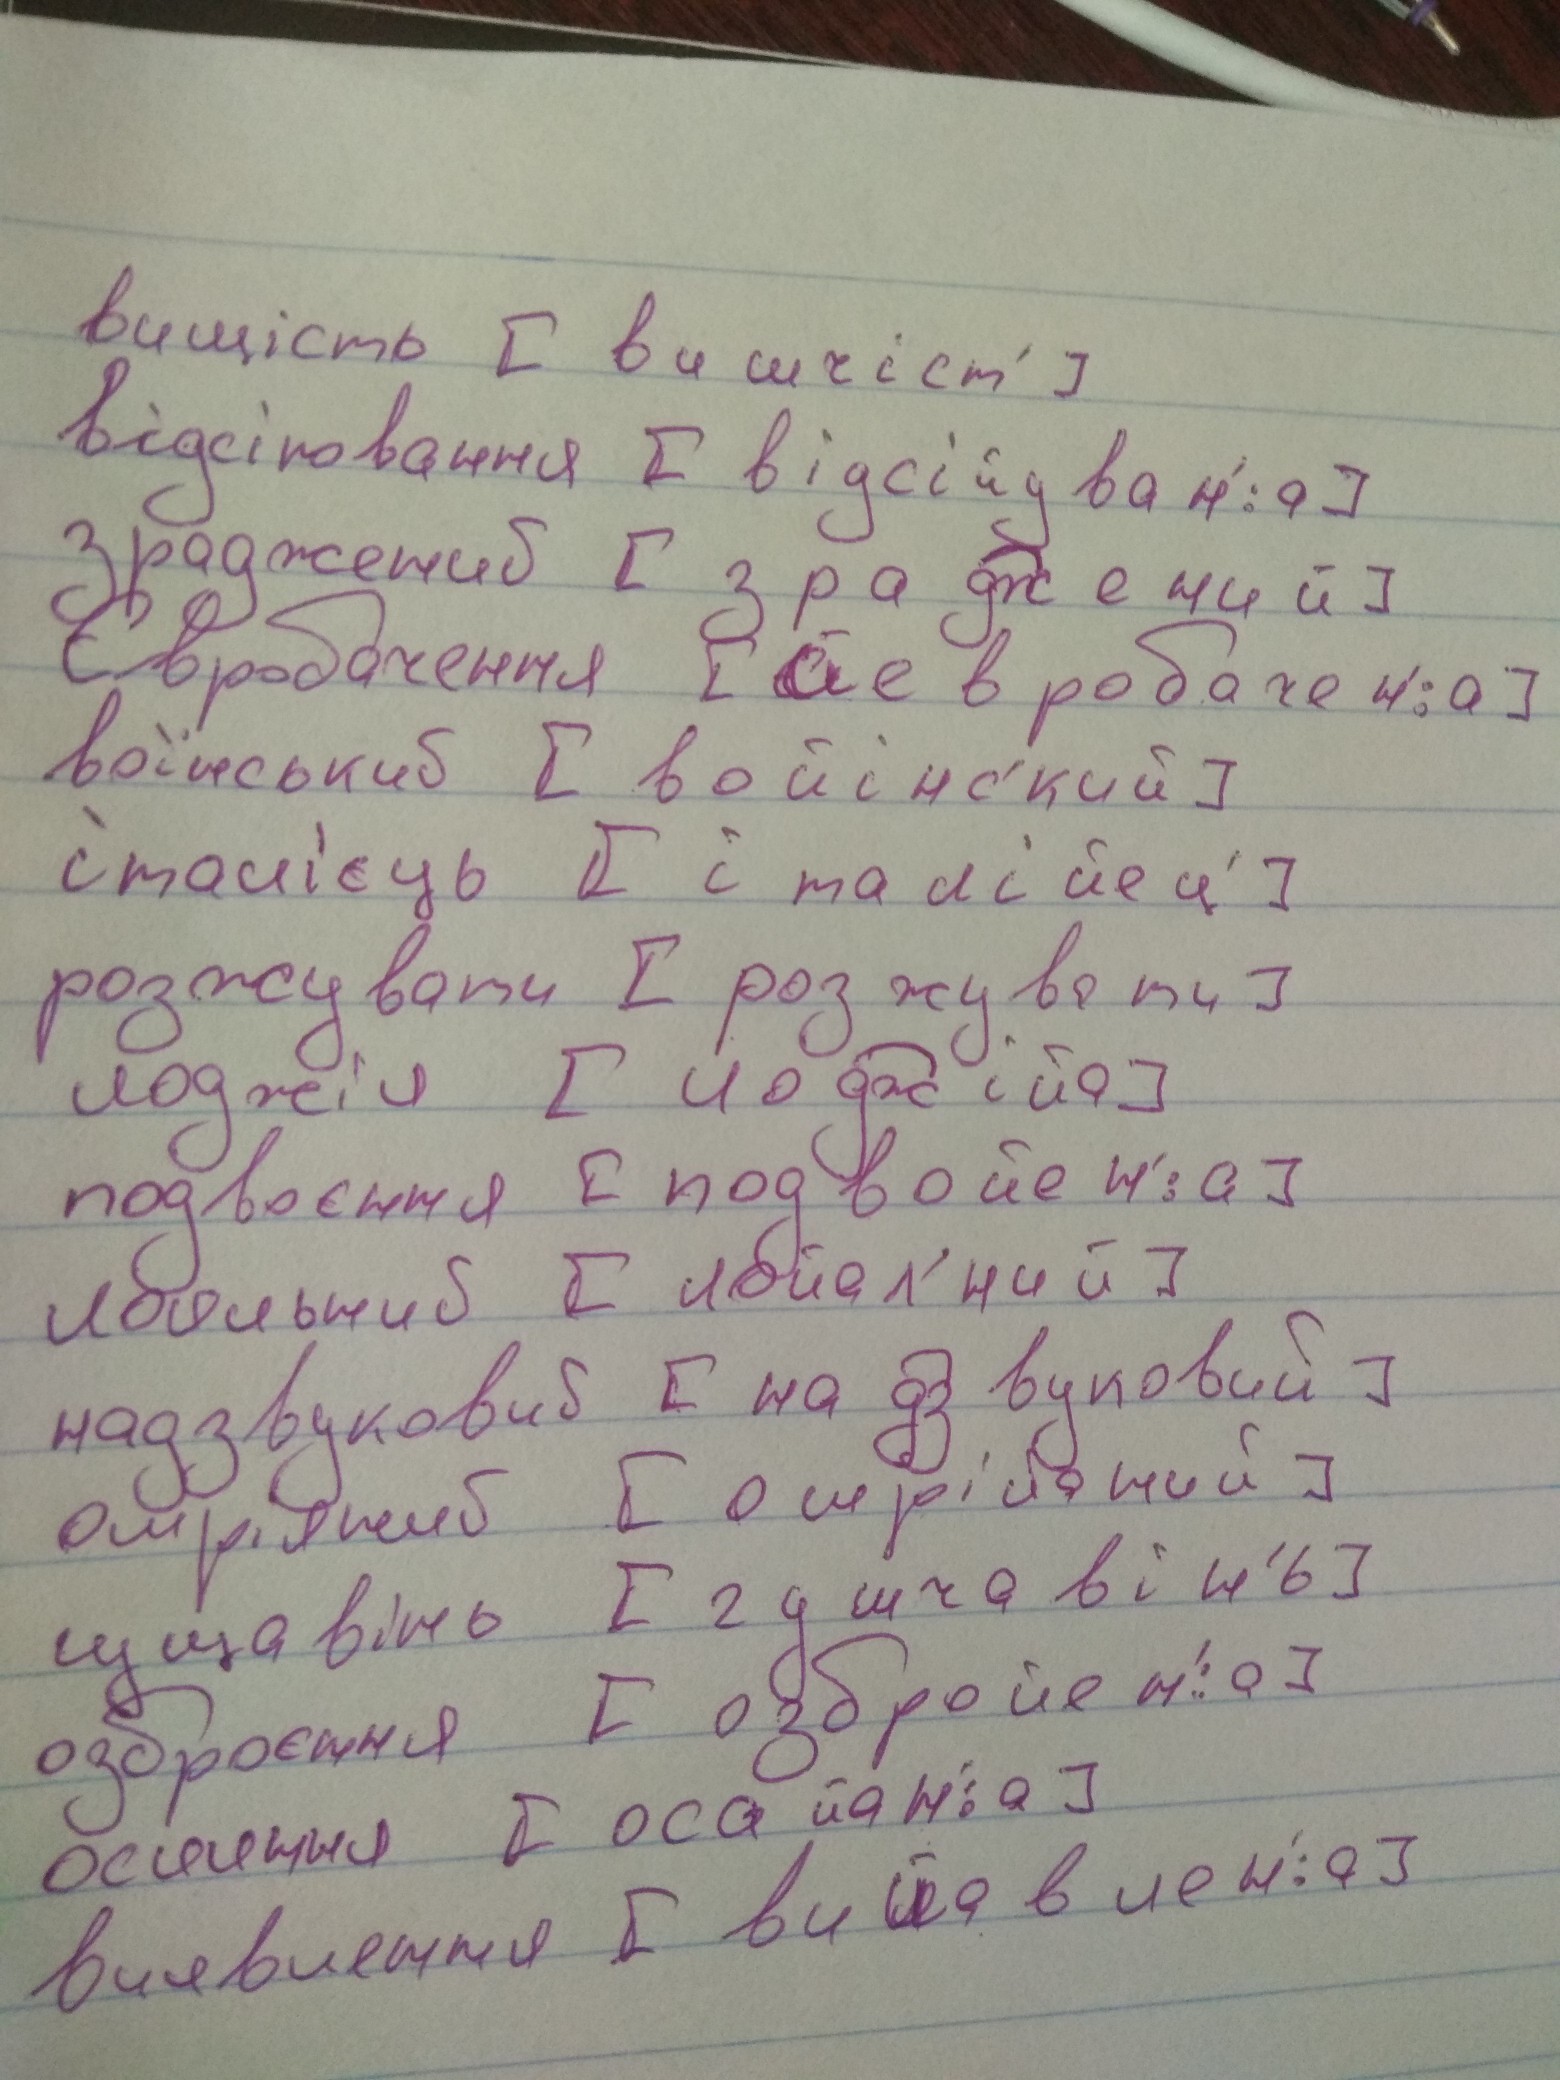 вищість [ вишчіст′ ]
відсіювання [ відсійуван′:а ]
зраджений [ зраджений ]
Євробачення [ йевробачен′:а ]
воїнський [ войінс′кий ]
італієць [ італійец′ ]
розжувати [ розжувати ]
лоджія [ лоджійа ]
подвоєння [ подвойен′:а ]
лояльний [ лойал′ний ]
надзвуковий [ надзвуковий ]
омріяний [ омрійаний ]
гущавінь [ гушчавін′ь ]
озброєння [ озбройен′:а ]
осяяння [ осайан′:а ]
виявлення [ вийавлен′:а ]